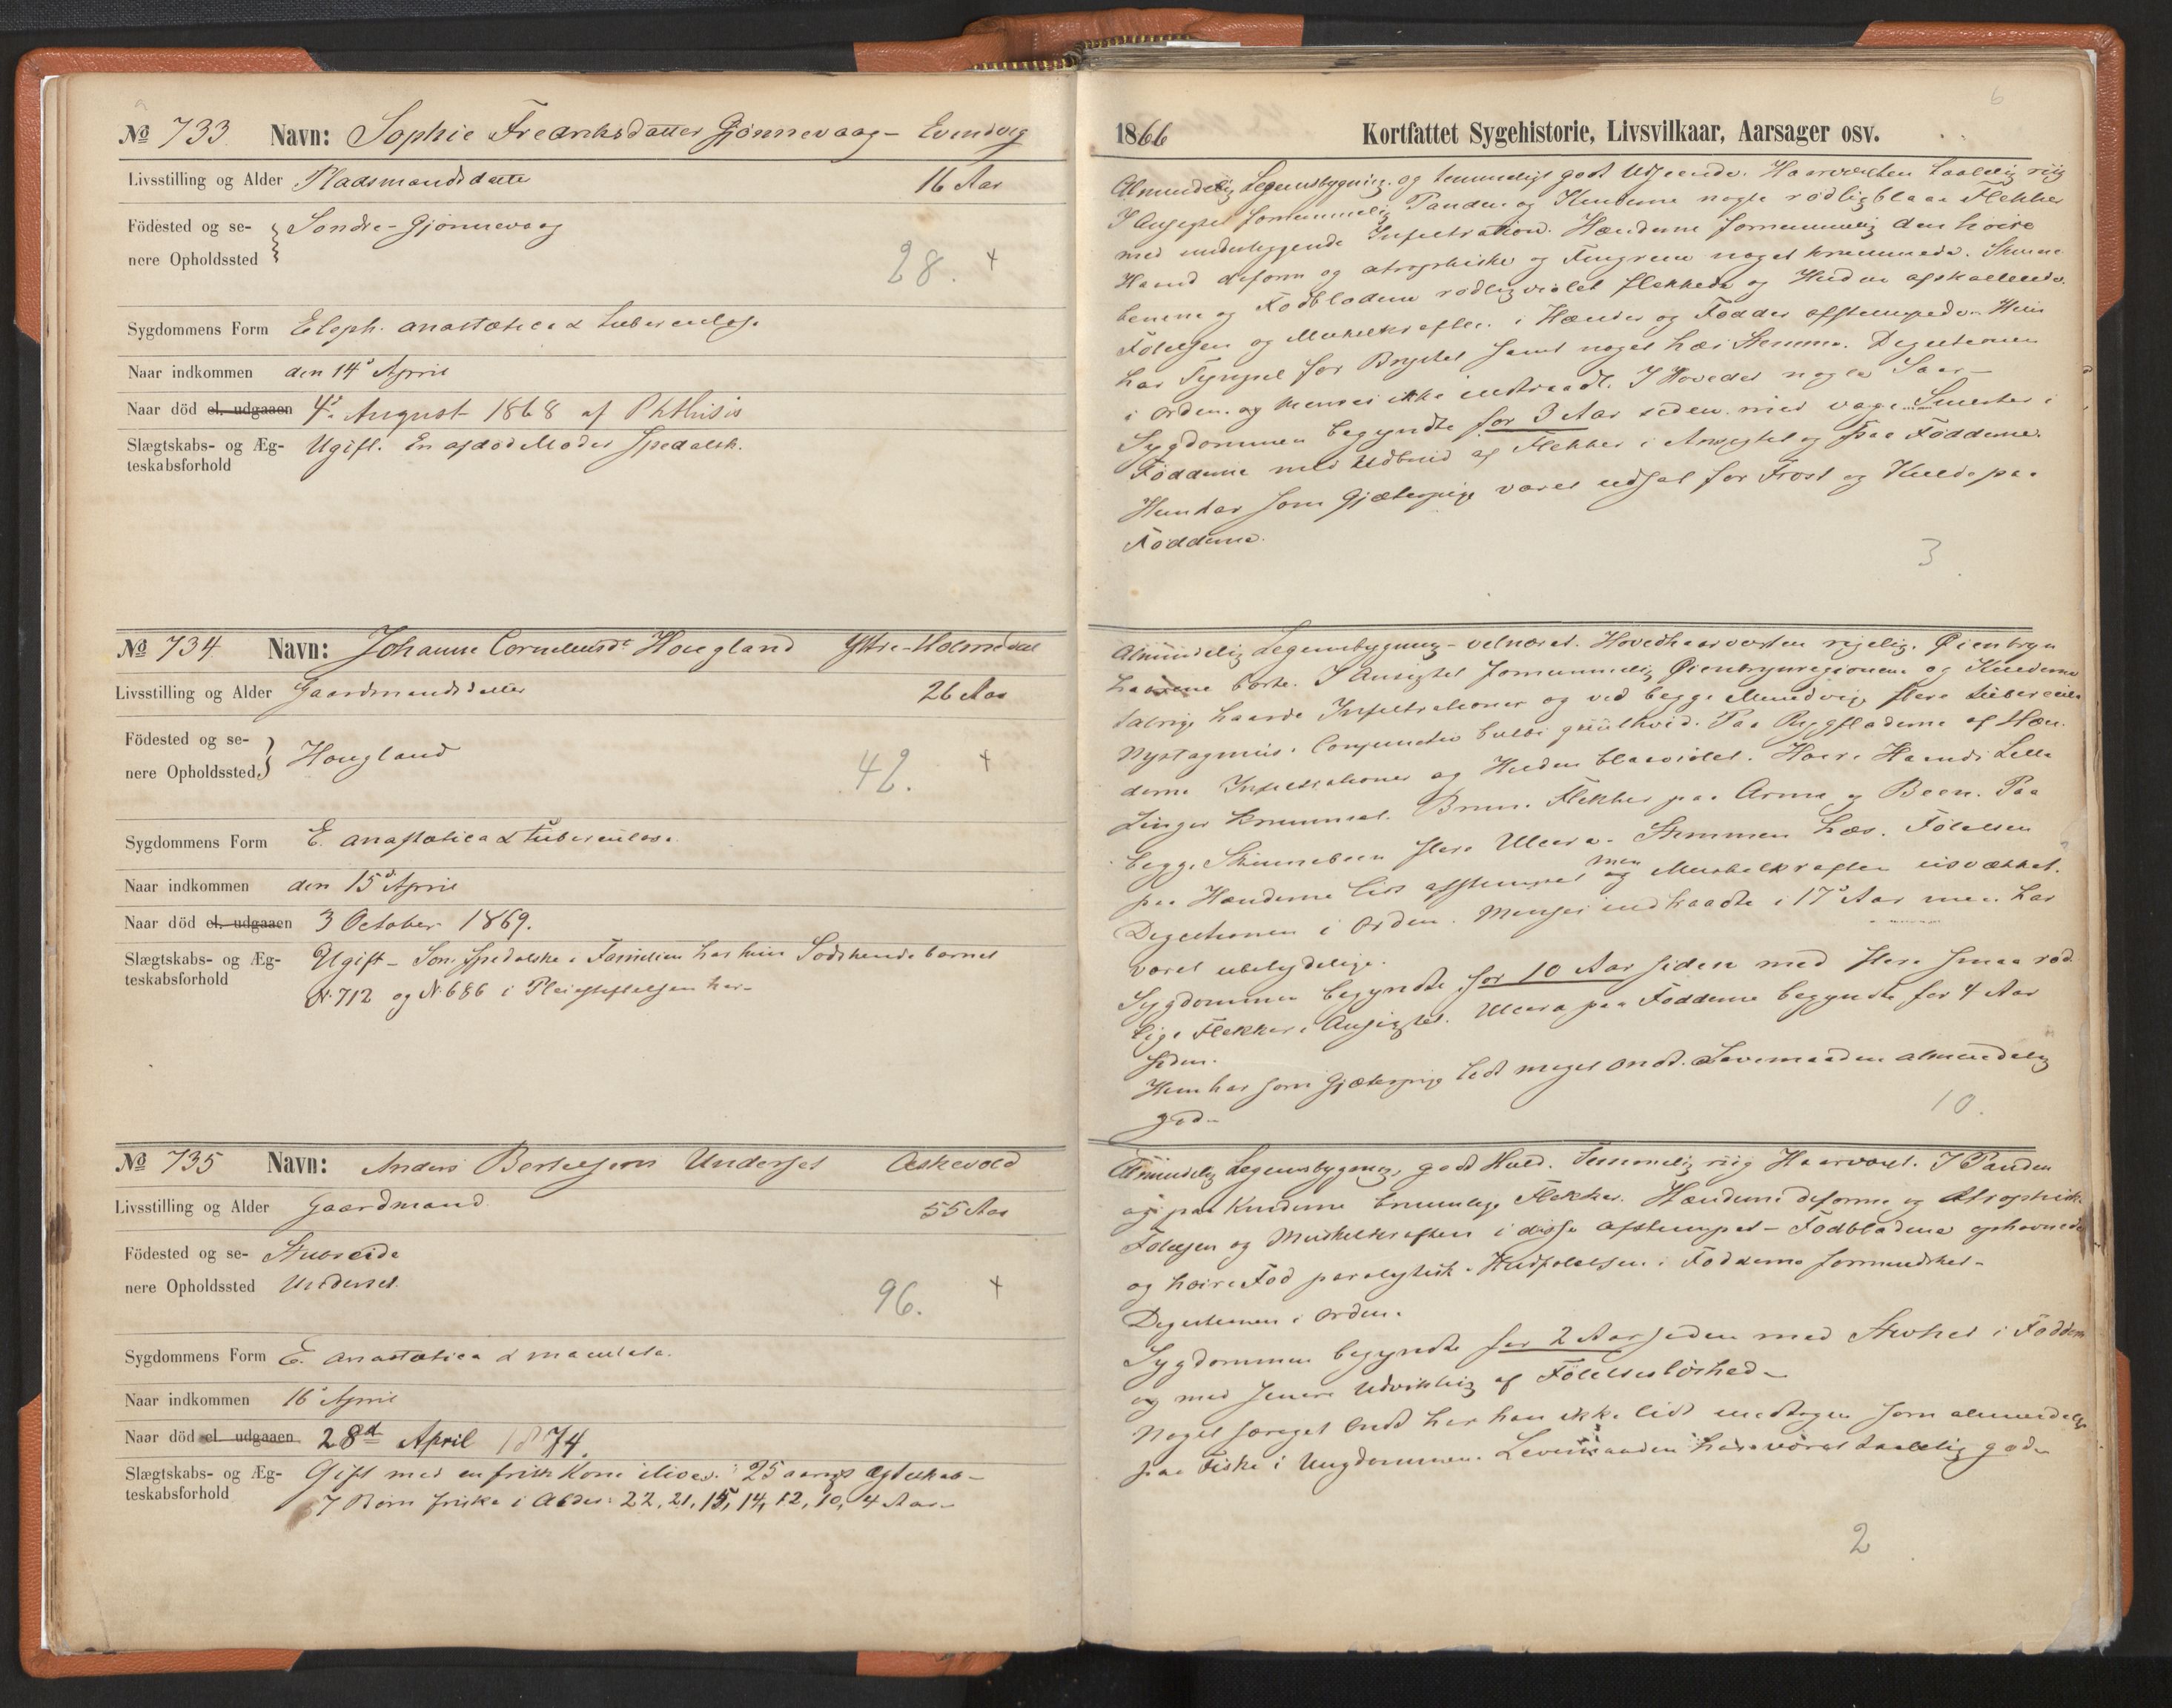 № 733 Navn: Sophie Fredriksdatter Gjönnevaag - Evindvig
Livsstilling og Alder Pladsmandsdatter 16 Aar
Födested og se-
nere Opholdssted
Söndre-Gjönnevaag
28. +
Sygdommens Form Eleph. anæstetica & tuberculosa
Naar indkommen den 14d April
Naar död el. udgaaen 4d August 1868 af Phthisis
Slægtskabs- og Æg-
teskabsforhold
Ugift. En afdød Moder spedalsk.
№ 734 Navn: Johanne Corneliusdr Hougland Yttre-Holmedal
Livsstilling og Alder Gaardmandsdatter 26 Aar
Födested og se-
nere Opholdssted
Hougland
42. +
Sygdommens Form E. anæstetica & tuberculosa.
Naar indkommen den 15d April
Naar död el. udgaaen 3 October 1869.
Slægtskabs- og Æg-
teskabsforhold
Ugift - Som spedalske i Familien har hun Sødskendebarnet
N. 712 og N. 686 i Pleiestiftelsen her -
№ 735 Navn: Anders Bertelsen Underset Askevold
Livsstilling og Alder Gaardmand 55 Aar
Födested og se-
nere Opholdssted
Stubseide
Underset
96. +
Sygdommens Form E. anæstetica & maculata.
Naar indkommen 16d April
Naar död el. udgaaen 28d April 1874.
Slægtskabs- og Æg-
teskabsforhold
Gift med en frisk Kone ilive. 25 aarigt Ægteskab -
7 Børn friske i Alder: 22, 21, 15, 14, 12, 10, 4 Aar -
6
1866 Kortfattet Sygehistorie, Livsvilkaar, Aarsager osv.
Almindelig Legemsbygning og temmeligt godt Udseende. Haarvæxten taalelig riig
I Ansigtet fornemmelig Panden og Kinderne nogle rødligblaae Flekker
med underliggende Infiltration. Hænderne fornemmelig den høire
Haand deform og atrophiske og Fingrene noget krummede. Skinne-
benene og Fodbladene rødligviolet flekkede og Huden afskallende.
Følelsen og Muskelkraften i Hænder og Fødder afstumpede. Hun
har Tyngsel for Brystet samt noget hæs Stemme. Digestionen
i Orden og Menses ikke indtraadt. I Hovedet nogle Saar -
Sygdommen begyndte for 3 Aar siden med vage Smerter i
Fødderne med Udbrud af Flekker i Ansigtet og paa Fødderne.
Hun har som Gjæterpige været udsat for Frost og Kulde paa
Fødderne.
3
Almindelig Legemsbygning - velnæret. Hovedhaarvæxten rigelig. Øienbryn
haarene borte. I Ansigtet fornemmelig Øienbrynregionerne og Kinderne
talrige haarde Infiltrationer og ved begge Mundvige flere Tubercula
Nystagmus. Conjunctiva bulbi guulhvid. Paa Rygfladerne af Hæn-
derne Infiltrationer og Huden blaaviolet. Høire Haands Lille
Finger krummet. Brune Flekker paa Arme og Been. Paa
begge Skinnebeen flere Ulcera. Stemmen hæs. Følelsen
paa Hænderne lidt afstumpet og men Muskelkraften usvækket.
Digestionen i Orden. Menses indtraadte i 17d Aar men har
været ubetydelige.
Sygdommen begyndte for 10 Aar siden med flere smaa rød-
lige Flekker i Ansigtet. Ulcera paa Fødderne begyndte for 4 Aar
siden.
Hun har som Gjæterpige lidt meget ondt. Levemaaden almindelig
god -
10.
Almindelig Legemsbygning, godt Huld. Temmelig riig Haarvæxt. I Panden
og paa Kinderne brunlige Flekker. Hænderne deforme og Atrophiske
Følelsen og Muskelkraften i disse afstumpet - Fodbladene ophovnede
og høire Fod paralytisk. Hudfølelsen i Fødderne formindsket -
Digestionen i Orden.
Sygdommen begyndte for 2 Aar siden med Stivhed i Fødderne
og med senere Udvikling af Følelsesløshed -
Noget særeget Ondt har han ikke lidt undtagen som almindelig
paa Fiske i Ungdommen. Levemaaden har været taalelig god -
2